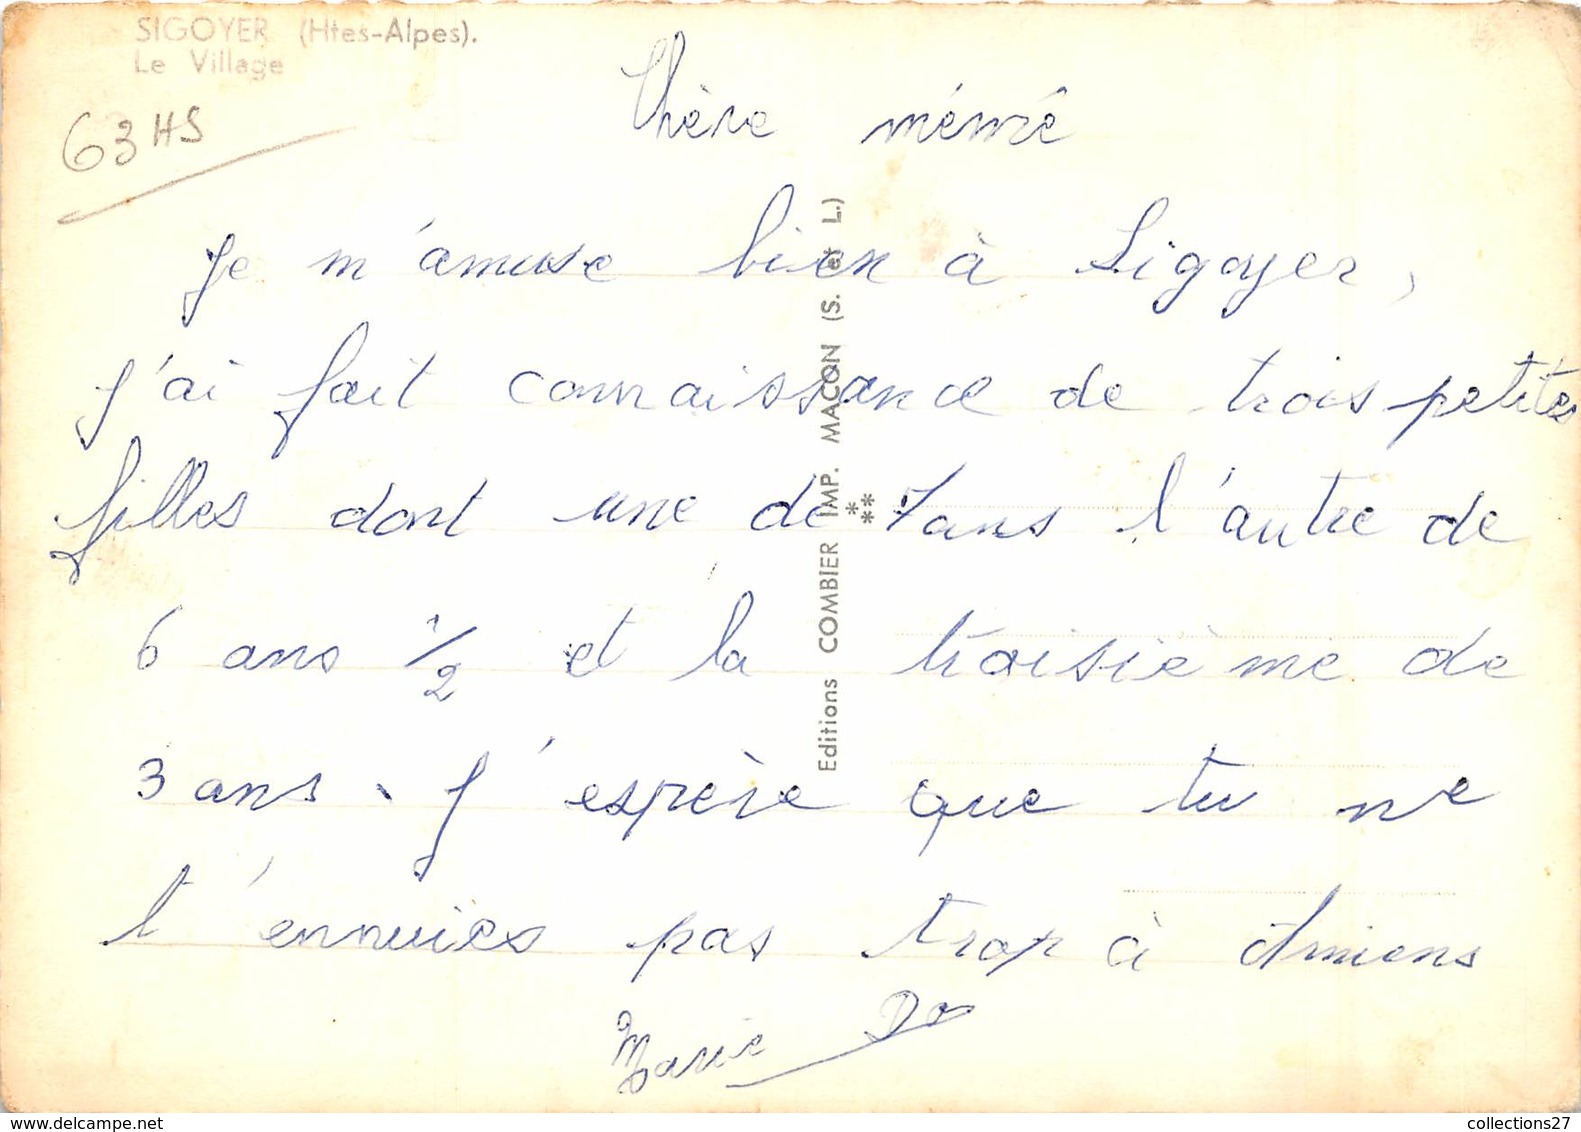 SIGOYER (Htes-Alpes).
Le Village
63 HS
Chère mémé
Je m'amuse bien à Sigoyer,
j'ai fait connaissance de trois petites
filles dont une de 7 ans l'autre de
6 ans 1/2 et la troisième de
3 ans. J'espère que tu ne
t'ennuies pas trop à Amiens
Marie Do
Editions COMBIER IMP. MACON (S. et L.)
collections27